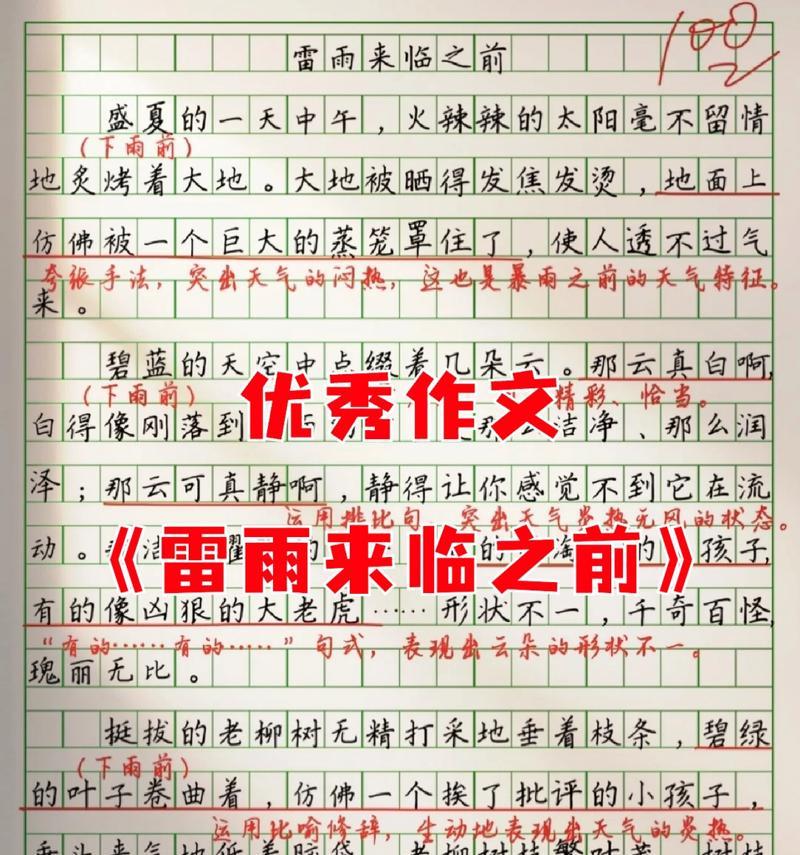 100
雷雨来临之前
盛夏的一天中午，火辣辣的太阳毫不留情
(下雨前)
地炙烤着大地。大地被晒得发焦发烫，地面上
仿佛被一个巨大的蒸笼罩住了，使人透不过气
夸张手法，突出天气的闷热，这也是暴雨之前的天气特征。
来。
碧蓝的天空中点缀着几朵云。那云真白啊，
(下雨前)
精彩、恰当。
优秀作文
白得像刚落到
洁净、那么润
泽；那云可真静啊，静得让你感觉不到它在流
运用排比句，突出天气炎热无风的状态。
动。
的
的
孩子，
《雷雨来临之前》
有的像凶狠的大老虎……形状不一，千奇百怪，
“有的……有的……”句式，表现出云朵的形状不一。
瑰丽无比。
挺拔的老柳树无精打采地垂着枝条，碧绿
(下雨前)
的叶子卷曲着，仿佛一个挨了批评的小孩子，
运用比喻修辞，生动地表现出天气的炎热。